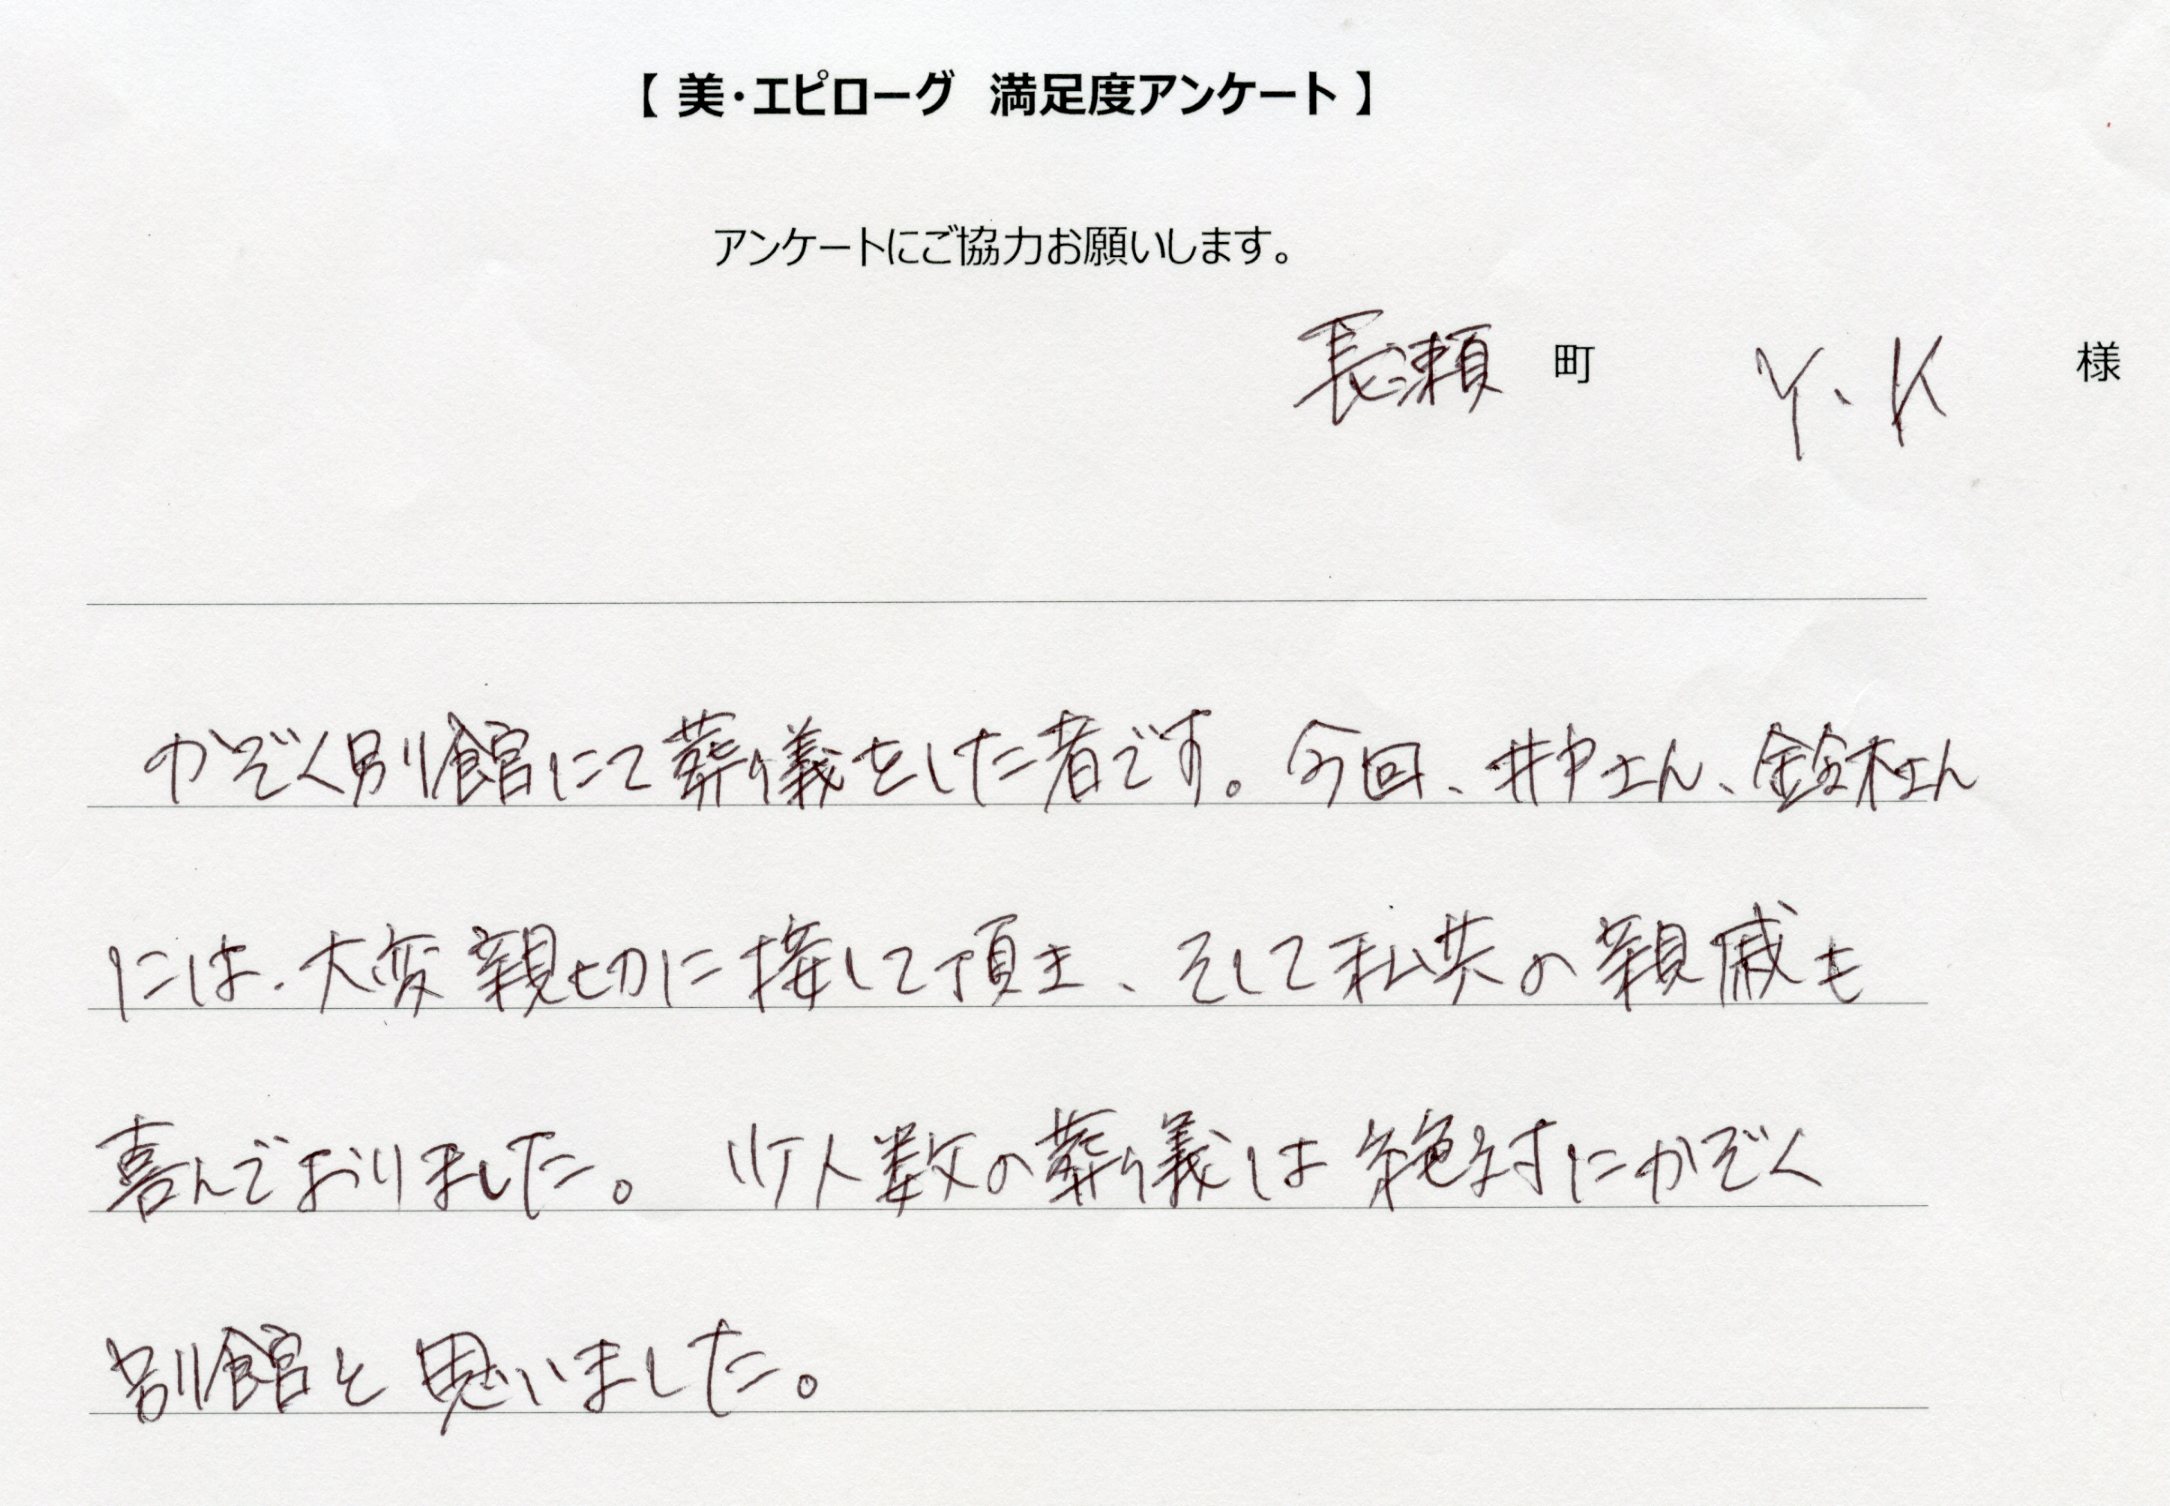 【 美・エピローグ 満足度アンケート 】
アンケートにご協力お願いします。
長瀬 町 Y.K 様
かぞく別館にて葬儀をした者です。今回、井戸さん、鈴木さん
には、大変親切に接して頂き、そして私共の親戚も
喜んでおりました。少人数の葬儀は絶対にかぞく
別館と思いました。